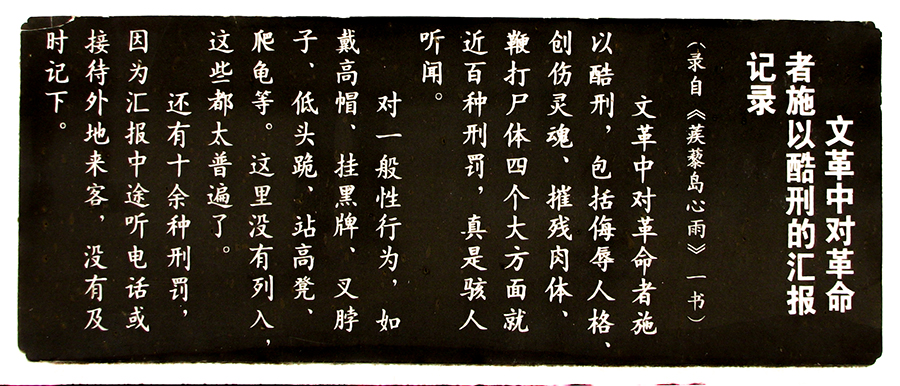 文革中对革命
者施以酷刑的汇报
记录
（录自《蒺藜岛心雨》一书）
文革中对革命者施
以酷刑，包括侮辱人格、
创伤灵魂、摧残肉体、
鞭打尸体四个大方面就
近百种刑罚，真是骇人
听闻。
对一般性行为，如
戴高帽、挂黑牌、叉脖
子、低头跪、站高凳、
爬龟等。这里没有列入，
这些都太普遍了。
还有十余种刑罚，
因为汇报中途听电话或
接待外地来客，没有及
时记下。